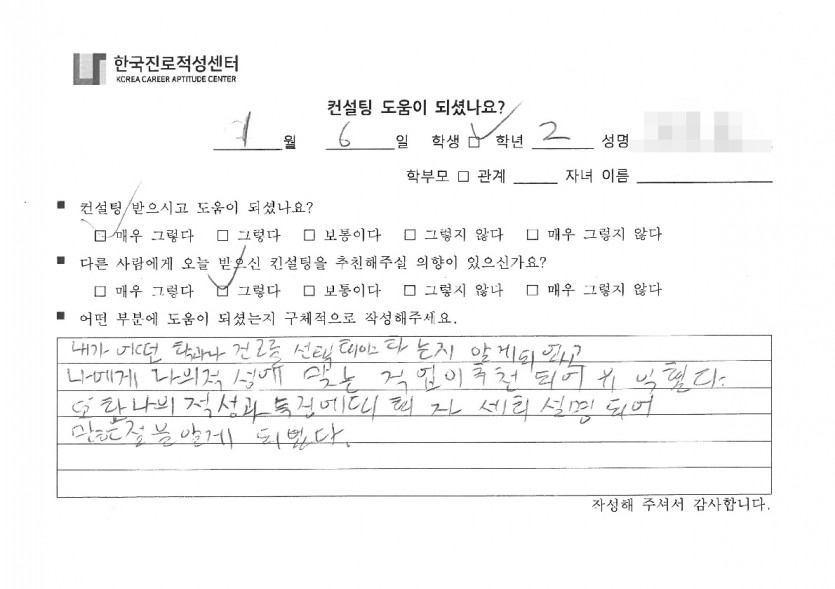 한국진로적성센터
KOREA CAREER APTITUDE CENTER
컨설팅 도움이 되셨나요?
월 6 일 학생 □ 학년 2 성명
학부모 □ 관계 자녀 이름
■ 컨설팅 받으시고 도움이 되셨나요?
□ 매우 그렇다 □ 그렇다 □ 보통이다 □ 그렇지 않다 □ 매우 그렇지 않다
■ 다른 사람에게 오늘 받으신 컨설팅을 추천해주실 의향이 있으신가요?
□ 매우 그렇다 □ 그렇다 □ 보통이다 □ 그렇지 않다 □ 매우 그렇지 않다
■ 어떤 부분에 도움이 되셨는지 구체적으로 작성해주세요.
내가 어떤 학과나 진로를 선택해야 하는지 알게되었고
나에게 나의적성에 맞는 직업이 추천 되어 유익했다.
또한 나의 적성과 특징에대해 자세히 설명 되어
많은점을 알게 되었다.
작성해 주셔서 감사합니다.